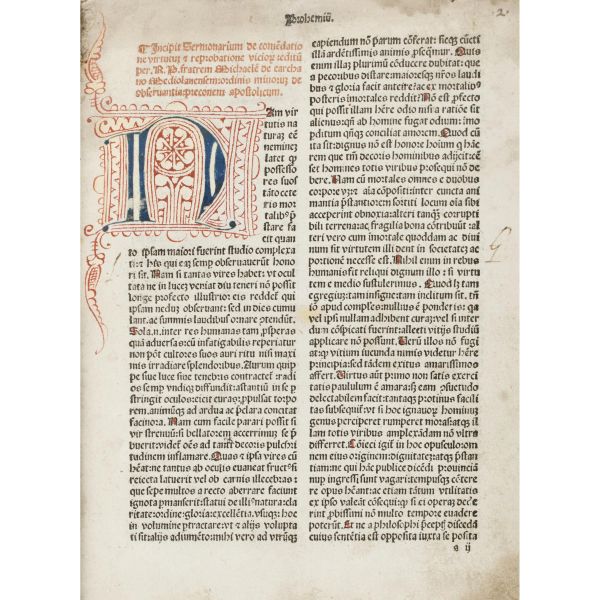 Prohemiū.
2.
Incipit Sermonarium de cōmēdatio
ne virtutū ⁊ reprobatione vicioꝝ editū
per. R. P. fratrem Michaelē de carcha
no Mediolanensem ordinis minoꝝ de
obseruantia: preconem apostolicum.
Nam vir
tutis na
turaꝫ eē
nemineꝫ
latet ꝙ
possesso
res suos
tāto cete
ris mor
talibꝰ p̄
stare fa
cit quan
to ipsam maiori fuerint studio complexa
ti: ꝙ his qui eaꝫ semp obseruauerūt hono
ri sit. Nam si tantas vires habet: vt ocul
tate ne in luceꝫ veniat diu teneri nō possit
longe profecto illustrior eis reddet qui
ipsam neduꝫ obseruant: sed in dies cumu
lant. ac summis laudibus ornare ꝯtendūt.
Sola. n. inter res humanas tam, ꝓsperas
quā aduersas: cū infatigabilis reperiatur
non pōt cultores suos auri ritu nisi maxi
mis irradiare splendoribus. Aurum quip
pe siue luce sine tenebris contractet: radi
os semp vndiqꝫ diffundit: astantiū in se p
stringit oculos: eicit curas: ꝓpulsat torpo
rem. animūqꝫ ad ardua ac p̄clara concitat
facinora. Nam cum facile parari possit si
vir strenuū: si bellatorem accerrimuꝫ se p̄
buerit: videt oēs ad tantā decoris pulchri
tudinem inflamare. Quas ⁊ ipsa vires cū
heat: ne tantus ab oculis euaneat fructꝰ: si
reiecta latuerit vel ob carnis illecebras:
que sepe multos a recto aberrare faciunt
ignota pmanserit: statui de illiꝰ natura: cla
ritate: ordine: gloria: excellētia. vsuqꝫ: hoc
in volumine ptractare: vt ⁊ alijs volupta
ti sit: alijs adiumēto. mihi vero ad vtrūqꝫ
capiendum nō parum cōferat: sicqꝫ cūcti
illā ardentissimis animis ꝓseqmur. Quis
enim illaꝫ plurimū cōducere dubitat: que
nos a pecoribus distare: maioresqꝫ nr̄os laudi
bus ⁊ gloria facit anteire? ac ex mortalibꝰ
posteris imortales reddit? Nō est ꝓfecto
qui possit illam hēre odio nisi a ratiōe sit
alienus: qñ ab homine fugat odium: imo
pditum qñqꝫ conciliat amorem. Quod cū
ita sit: dignus nō est honore hoium ꝗ hāc
rem que tm̄ decoris hominibus adijcit: cē
set homines totis viribus prosequi nō de
bere. Nam cū mortales omnes e duobus
corpore vꝫ: ⁊ aīa cōpositi: inter cuncta ani
mantia p̄stantiorem sortiti locum oīa sibi
acceperint obnoxia: alteri tanqꝫ corrupti
bili terrena: ac fragilia bona cōtribuūt: al
teri vero cum imortale quoddam ac diui
num sit virtutem illi dent in societateꝫ: ac
portionē necesse est. Nihil enim in rebus
humanis fit reliqui dignum illo: si virtu
tem e medio sustulerimus. Quod hꝫ tam
egregiuꝫ: tam insigne: tam inclitum sit. tn̄
io apud complesꝫ: nullius ē ponderis: qa
vel ipsi nullam adhibent curaꝫ: vel si inter
dum cōspicati fuerint: alleti vitijs studiū
applicare nōn possunt. Veru illos nō fugi
at: ꝙ virtutum iucunda nimis videtur hēre
principia: sed tādem exitus amarissimos
affert. Virtus aūt primo non satis exerci
tatis paululum ē amara: hꝫ eam ꝓsuetudo
delectabilem facit: tantaqꝫ protinus facilit
tas subsequit: vt si hoc ignauoꝝ hominuꝫ
genus perciperet rumperet moras: atqꝫ il
lam totis viribus amplexādam nō vltra
differret. Cōieci igit in hoc opusculo: om
nem eius originem: dignitateꝫ: atqꝫ p̄stan
tiam: ne qui hāc publice dicēdi prouinciā
nup ingressi sunt vagari: tempusqꝫ cētere
re opus hēant: ac etiam tātum vtilitatis
ex ipso valeāt cōsequi: ꝙ si ei operaꝫ dede
rint ꝓbissimi nō multo tempore euadere
poterūt. Et ne a philosophi p̄ceptꝭ discedā
cuius sentētia est opposita iuxta se posita
a ij